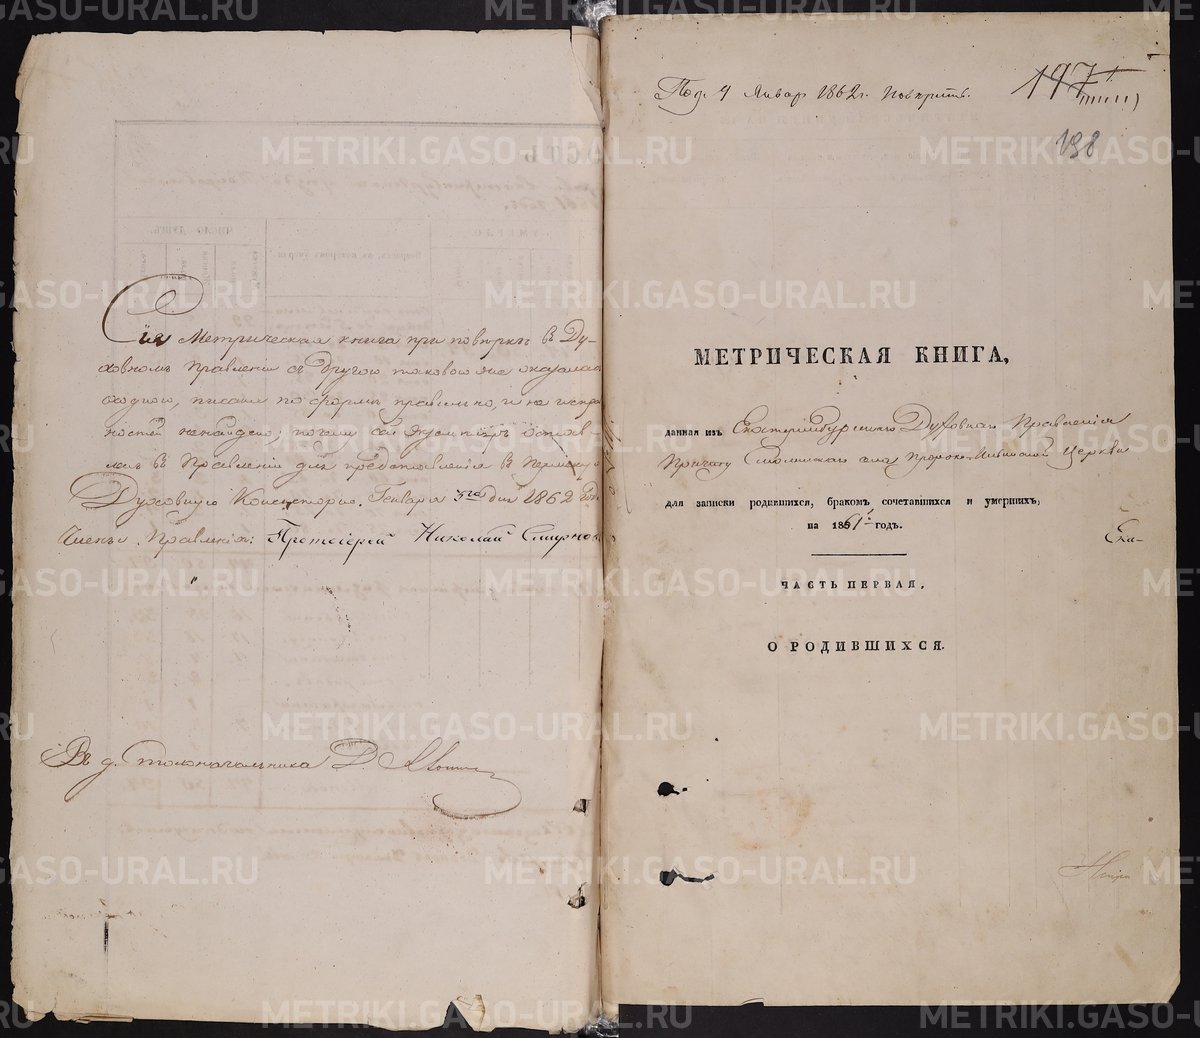 Сія Метрическая книга при повѣркѣ въ Ду-
ховномъ Правленіи съ другою таковою же оказалась
сходною, писана по формѣ правильно, и не испра
ностей не найдено; почему сей экземпляръ оставл
въ Правленіи для представленія въ Пермскую
Духовную Консисторію. Генваря дня 1862 года
Члены Правленія: Протоіерей Николай Смирнов
Въ д. Столоначальника
Под. 4 Январ 1862 г. Повѣрить.
197
198
МЕТРИЧЕСКАЯ КНИГА,
данная изъ Екатеринбургскаго Духовнаго Правленія
Причту Пророко-Ильинской Церкви
для записки родившихся, бракомъ сочетавшихся и умершихъ,
на 1861 годъ.
Ека-
ЧАСТЬ ПЕРВАЯ,
О РОДИВШИХСЯ.
METRIKI.GASO-URAL.RU